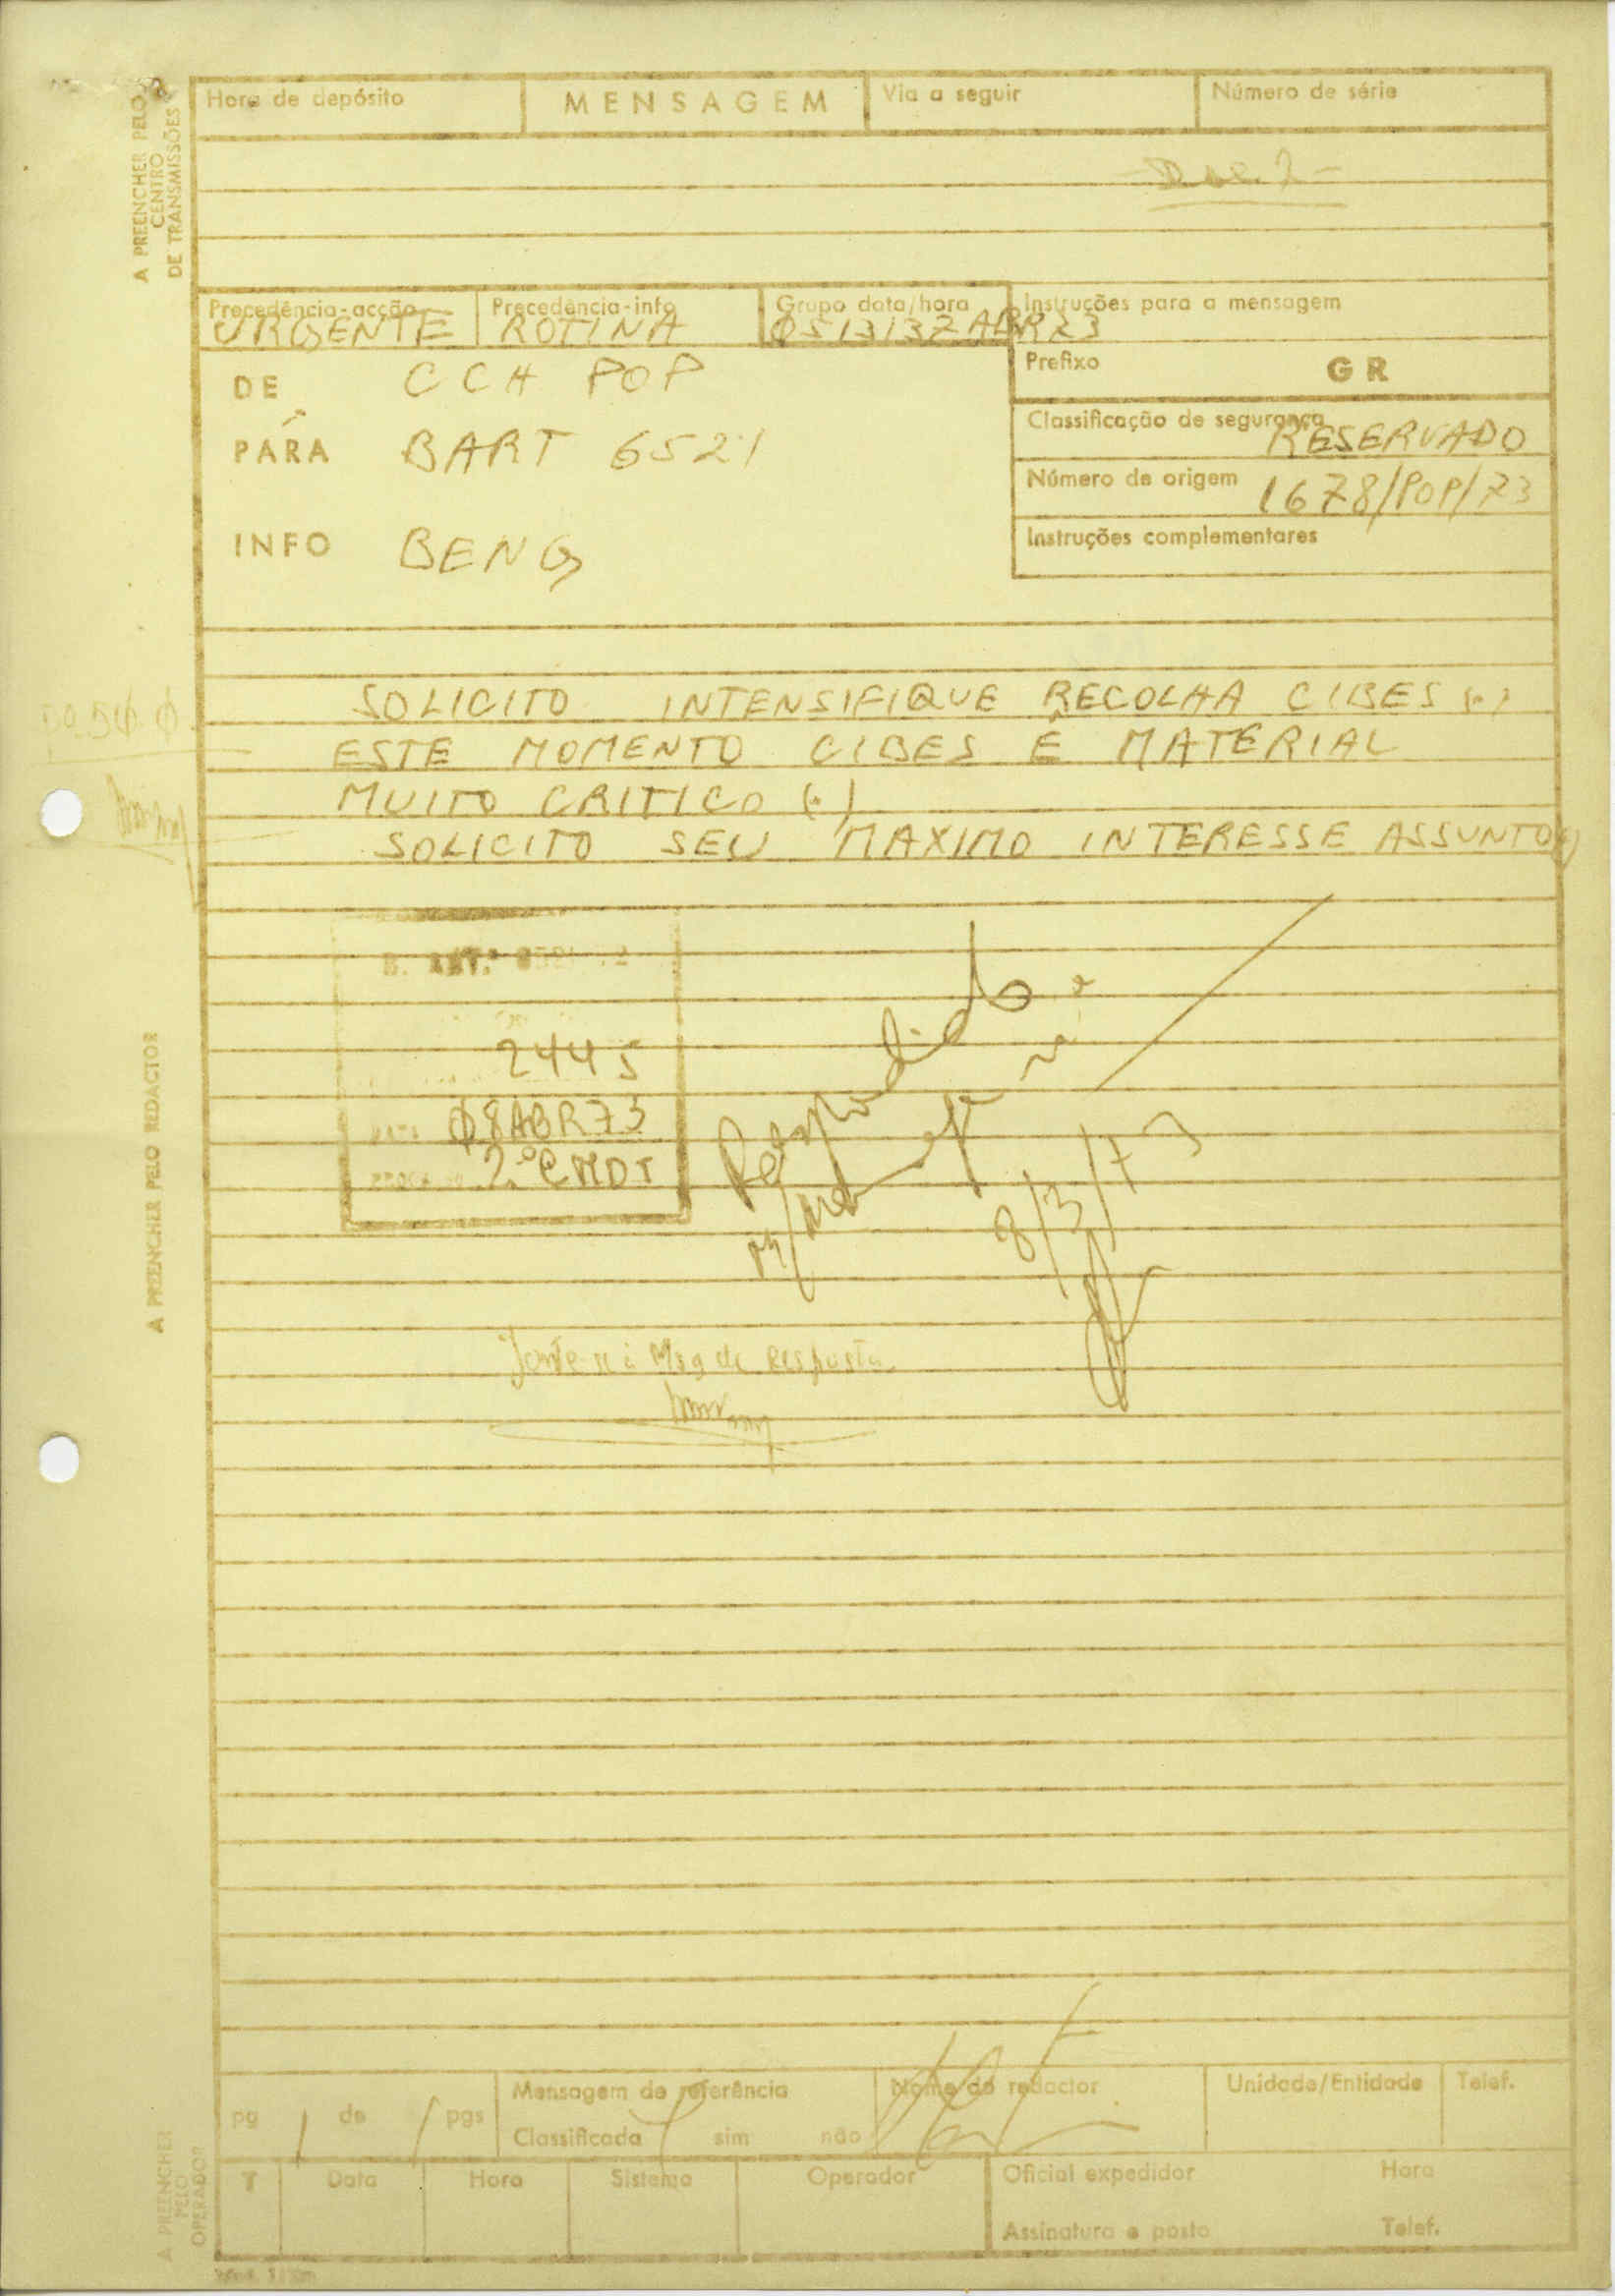 A PREENCHER PELO
CENTRO
DE TRANSMISSÕES
Hora de depósito
MENSAGEM
Via a seguir
Número de série
Precedência-acção
URGENTE
Precedência-info
ROTINA
Grupo data/hora
051313ZABR73
Instruções para a mensagem
DE CCH POP
Prefixo GR
PARA BART 6521
Classificação de segurança RESERVADO
Número de origem 1678/POP/73
INFO BENG
Instruções complementares
SOLICITO INTENSIFIQUE RECOLHA CIBES (.)
ESTE MOMENTO CIBES É MATERIAL
MUITO CRITICO (.)
SOLICITO SEU MAXIMO INTERESSE ASSUNTO (.)
A PREENCHER PELO REDACTOR
2445
DATA 08ABR73
2.º CMDT
Respondido
8/3/73
Junte-se à Msg de Resposta
pg 1 de 1 pgs
Mensagem de referência
Classificada sim não
Nome do redactor
Unidade/Entidade
Telef.
A PREENCHER
PELO
OPERADOR
T
Data
Hora
Sistema
Operador
Oficial expedidor
Hora
Assinatura e posto
Telef.